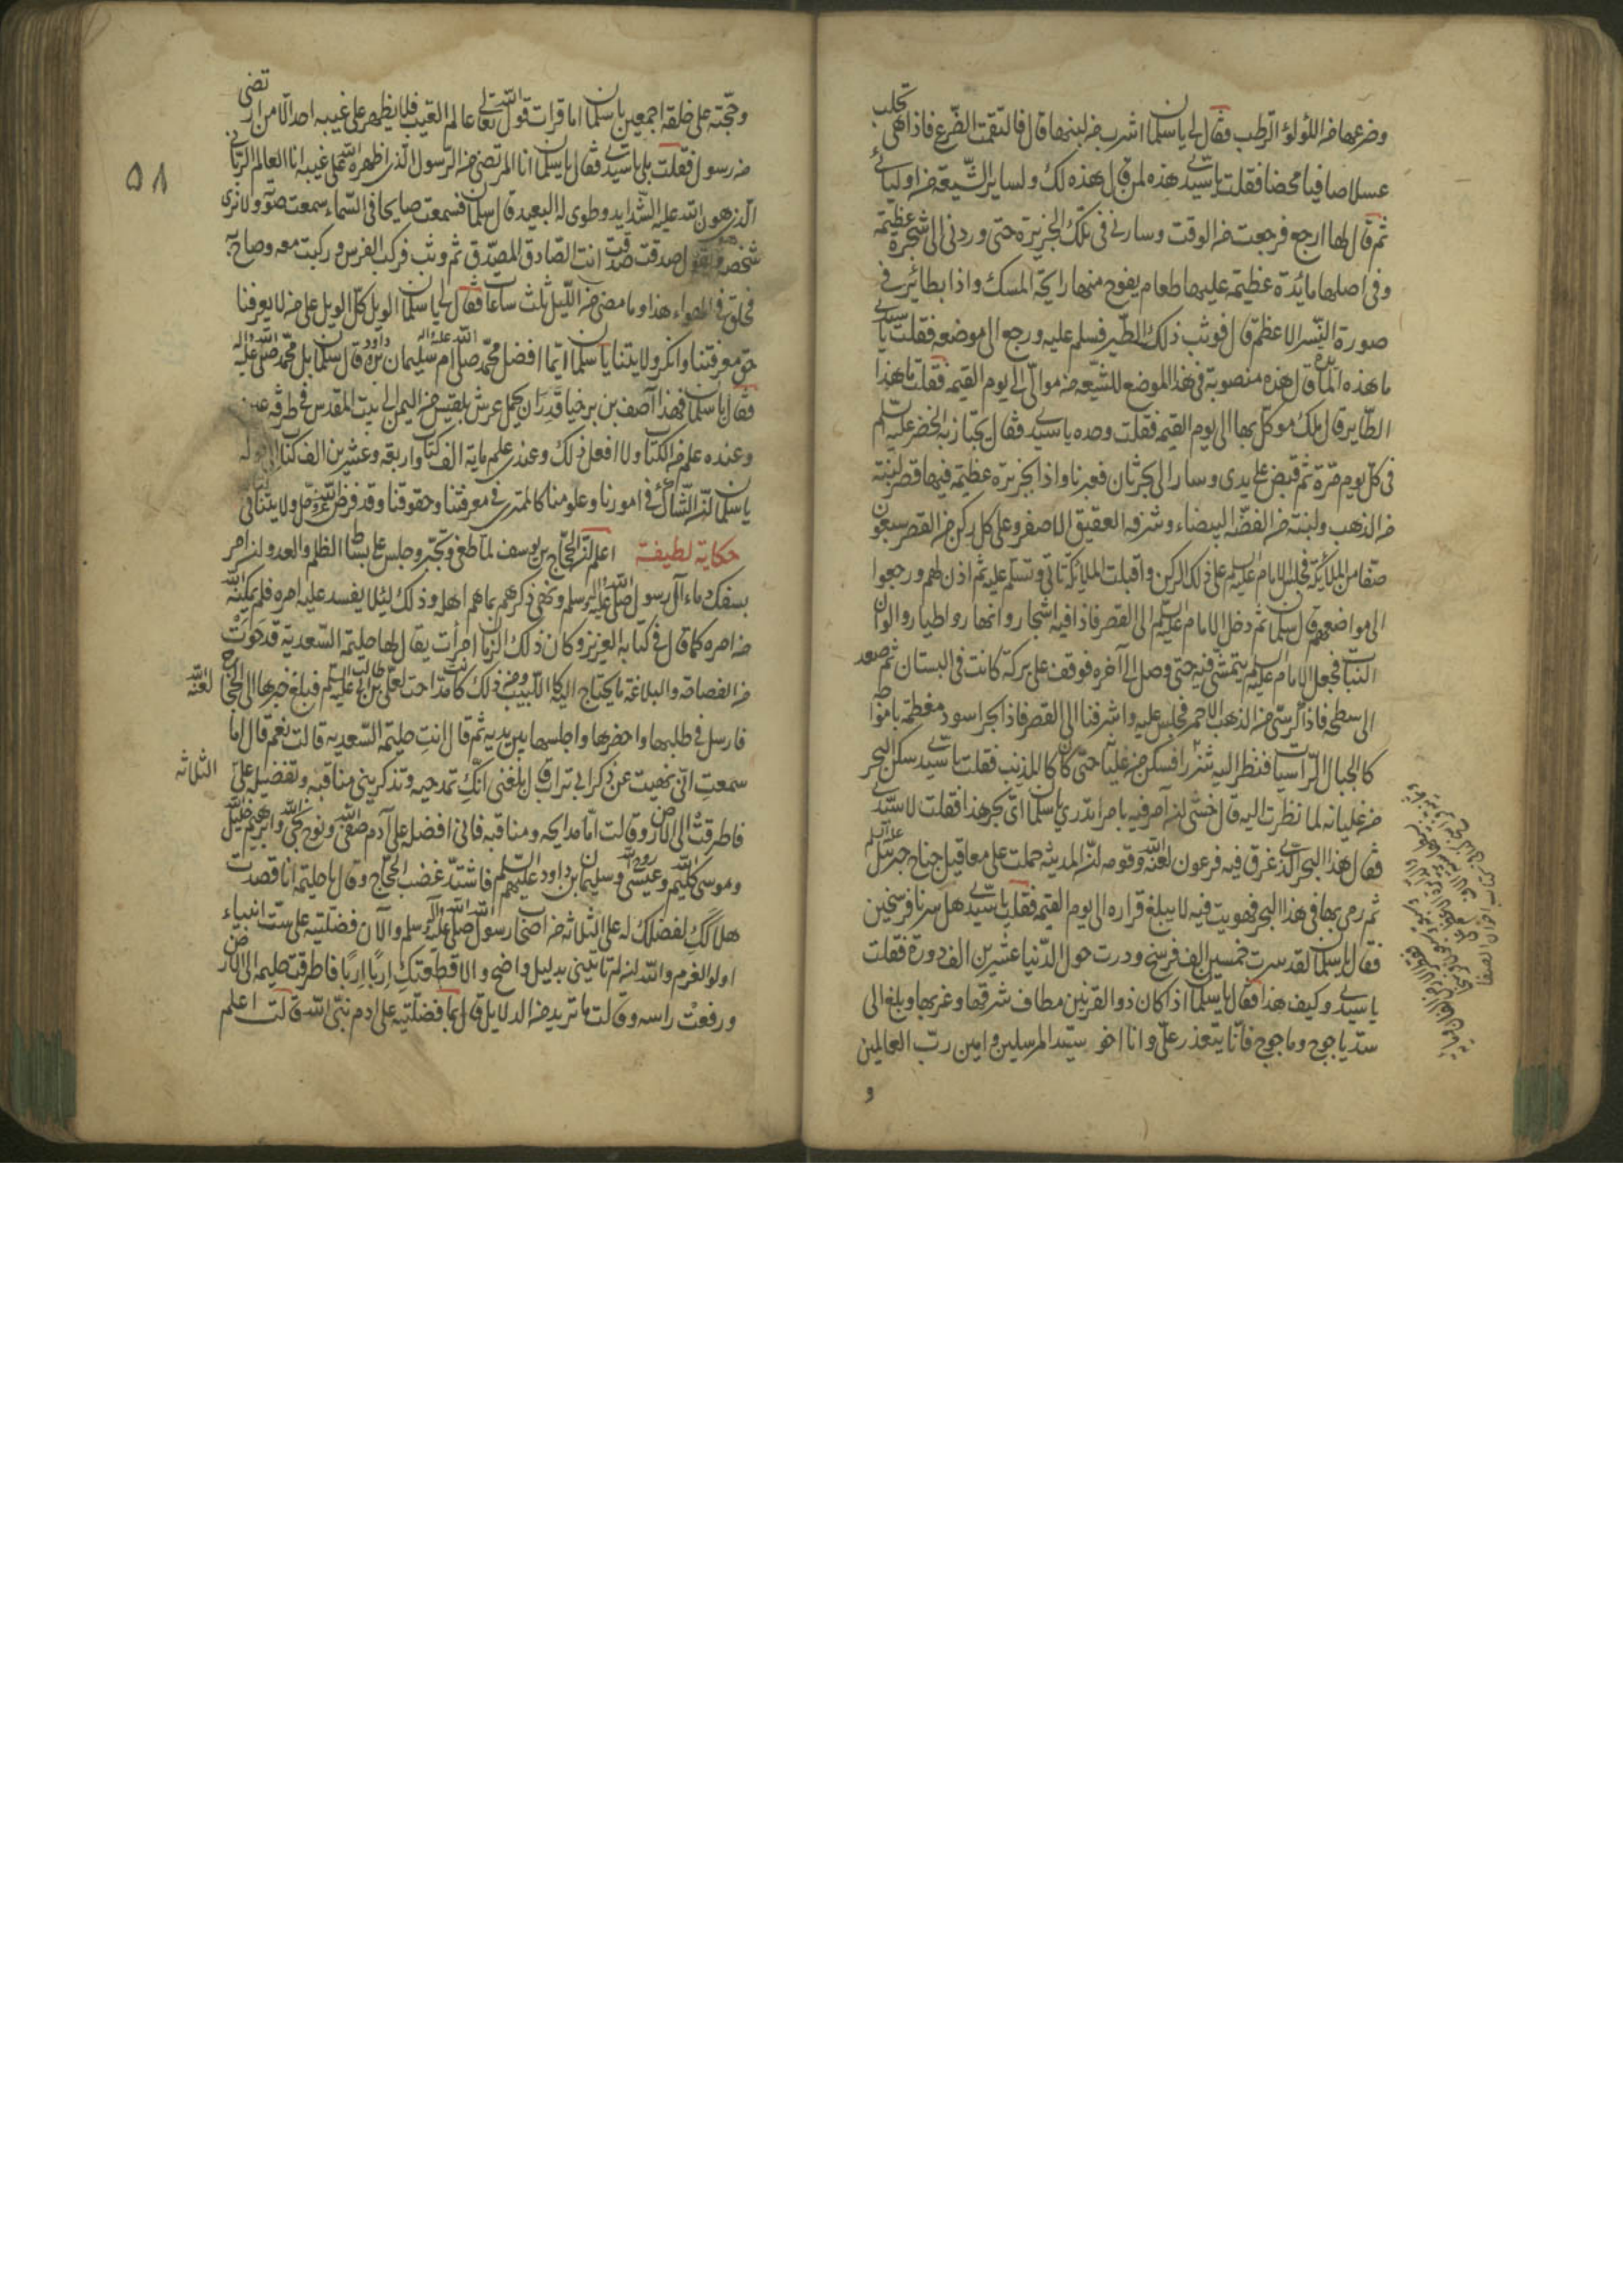 وضرعها من اللؤلؤ الرطب فقال لي يا سلمان اشرب من لبنها قال فالتقمت الضرع فاذا هي تحلب
عسلا صافيا محضا فقلت يا سيدي هذه لمن قال هذه لك ولساير الشيعة من اوليائي
ثم قال لها ارجع فرجعت من الوقت وسار في تلك الجزيرة حتى وردني الى شجرة عظيمة
وفي اصلها مائدة عظيمة عليها طعام يفوح منها رايحة المسك واذا بطائر في
صورة النسر الاعظم قال فوثب ذلك الطير فسلم عليه ورجع الى موضعه فقلت يا سيدي
ما هذه المائدة قال هذه منصوبة في هذا الموضع للشيعة من موالي الى يوم القيمة فقلت ما هذا
الطاير قال ملك موكل بها الى يوم القيمة فقلت وحده يا سيدي فقال يجتاز به الخضر عليه السلم
في كل يوم مرة ثم قبض على يدي وسار الى بحر ثان فعبرنا واذا بجزيرة عظيمة فيها قصر لبنة
من الذهب ولبنة من الفضة البيضاء وشرفه العقيق الاصفر وعلى كل ركن من القصر سبعون
صفا من الملائكة فجلس الامام عليه السلم على ذلك الركن واقبلت الملائكة تاتي وتسلم عليه ثم اذن لهم ورجعوا
الى مواضعهم قال سلمان ثم دخل الامام عليه السلم الى القصر فاذا فيه اشجار وانهار واطيار والوان
النبات فجعل الامام عليه السلم يتمشى فيه حتى وصل الى آخره فوقف على بركة كانت في البستان ثم صعد
الى سطحه فاذا كرسي من الذهب الاحمر فجلس عليه واشرفنا الى القصر فاذا بحر اسود مغطمط بامواجه
كالجبال الراسيات فنظر اليه شزرا فسكن من غليانه حتى كان كالمذنب فقلت يا سيدي سكن البحر
من غليانه لما نظرت اليه قال خشي ان آمر فيه بامر اتدري يا سلمان اي بحر هذا فقلت لا سيدي
فقال هذا البحر الذي غرق فيه فرعون لعنه الله وقومه ان المدينة حملت على معاقيل جناح جبرئيل عليه السلم
ثم رمي بها في هذا البحر فهويت فيه لا يبلغ قراره الى يوم القيمة فقلت يا سيدي هل سرنا فرسخين
فقال يا سلمان لقد سرت خمسين الف فرسخ ودرت حول الدنيا عشرين الف دورة فقلت
يا سيدي وكيف هذا فقال يا سلمان اذا كان ذو القرنين مطاف شرقها وغربها وبلغ الى
سد ياجوج وماجوج فانا يتعذر علي وانا اخو سيد المرسلين وامين رب العالمين
و
۵۸
وحجته على خلقه اجمعين يا سلمان اما قرات قول الله تعالى عالم الغيب فلا يظهر على غيبه احدا الا من ارتضى
من رسول فقلت بلى يا سيدي فقال يا سلمان انا المرتضى من الرسول الذي اظهره الله على غيبه انا العالم الرباني
الذي هون الله عليه الشدايد وطوى له البعيد قال سلمان فسمعت صايحا في السماء سمعت صوته ولا نرى
شخصه وهو يقول صدقت صدقت انت الصادق المصدق ثم وثب فركب الفرس وركبت معه وصاح به
فحلق في الهواء هذا وما مضى من الليل ثلث ساعات فقال لي يا سلمان الويل كل الويل على من لا يعرفنا
حق معرفتنا وانكر ولايتنا يا سلمان ايما افضل محمد صلى الله عليه واله ام سليمان بن داود قال سلمان بل محمد صلى الله عليه واله
فقال يا سلمان فهذا آصف بن برخيا قدر ان يحمل عرش بلقيس من اليمن الى بيت المقدس في طرفة عين
وعنده علم من الكتاب ولا افعل ذلك وعندي علم ماية الف كتاب واربعة وعشرين الف كتاب
يا سلمان ان الشاك في امورنا وعلومنا كالممتري في معرفتنا وحقوقنا وقد فرض الله عز وجل ولايتنا في كتابه
حكاية لطيفة اعلم ان الحجاج بن يوسف لما طغى وتجبر وجلس على بساط الظلم والعدوان امر
بسفك دماء آل رسول الله صلى الله عليه واله وسلم ونهى ذكرهم بما هم اهله وذلك لئلا يفسد عليه امره فلم يمكنه الله
من امره كما قال في كتابه العزيز وكان ذلك الزمان امرأت يقال لها حليمة السعدية قد حَوَتْ
من الفصاحة والبلاغة ما يحتاج اليه كل اللبيب ومن ذلك كانت مداحت لعلي بن ابي طالب عليه السلم فبلغ خبرها الى الحجاج لعنه الله
فارسل في طلبها واحضرها واجلسها بين يديه ثم قال انتِ حليمة السعديه قالت نعم قال اما
سمعتِ اني نهيت عن ذكر ابي تراب قال بلغني انكِ تمدحيه وتذكريني مناقبه وتفضيل علي الثلاثه
فاطرقت الى الارض وقالت اما مدايحه ومناقبه فاني افضله على آدم صفي الله ونوح نجي الله وابرهيم خليل الله
وموسى كليم الله وعيسى روح الله وسليمان بن داود عليهم السلم فاشتد غضب الحجاج وقال يا حليمة انا قصدت
هلاككِ لفضلك له على الثلاثه من اصحاب رسول الله صلى الله عليه واله وسلم والآن فضلتيه على ست انبياء
اولو العزم والله ان لم تاتيني بدليل واضح والا قطعتكِ اِربًا اِربًا فاطرقت حليمه الى الارض
ورفعت راسه وقالت ما تريد من الدلايل قال بما فضلتيه على ادم نبي الله قالت اعلم